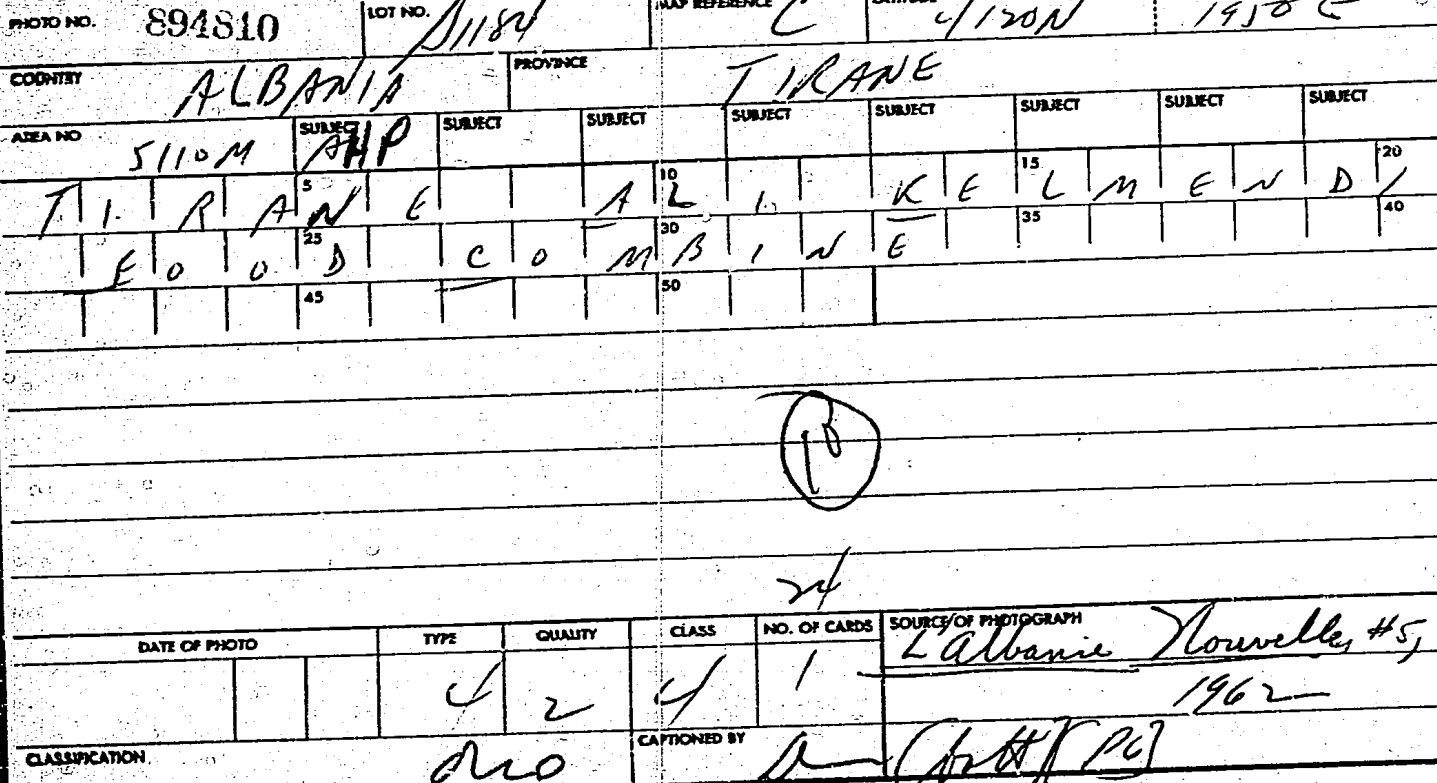 PHOTO NO. 894810 LOT NO. A1184 MAP REFERENCE C LATITUDE 4120N 1950E
COUNTRY ALBANIA PROVINCE TIRANE
AREA NO 5110M SUBJECT AHP SUBJECT SUBJECT SUBJECT SUBJECT SUBJECT SUBJECT SUBJECT
5 10 15 20
TIRANE ALI KELMENDI
25 30 35 40
FOOD COMBINE
45 50
24
DATE OF PHOTO TYPE QUALITY CLASS NO. OF CARDS SOURCE OF PHOTOGRAPH
L'Albanie Nouvelle, #5,
4 2 4 1 1962
CLASSIFICATION CAPTIONED BY